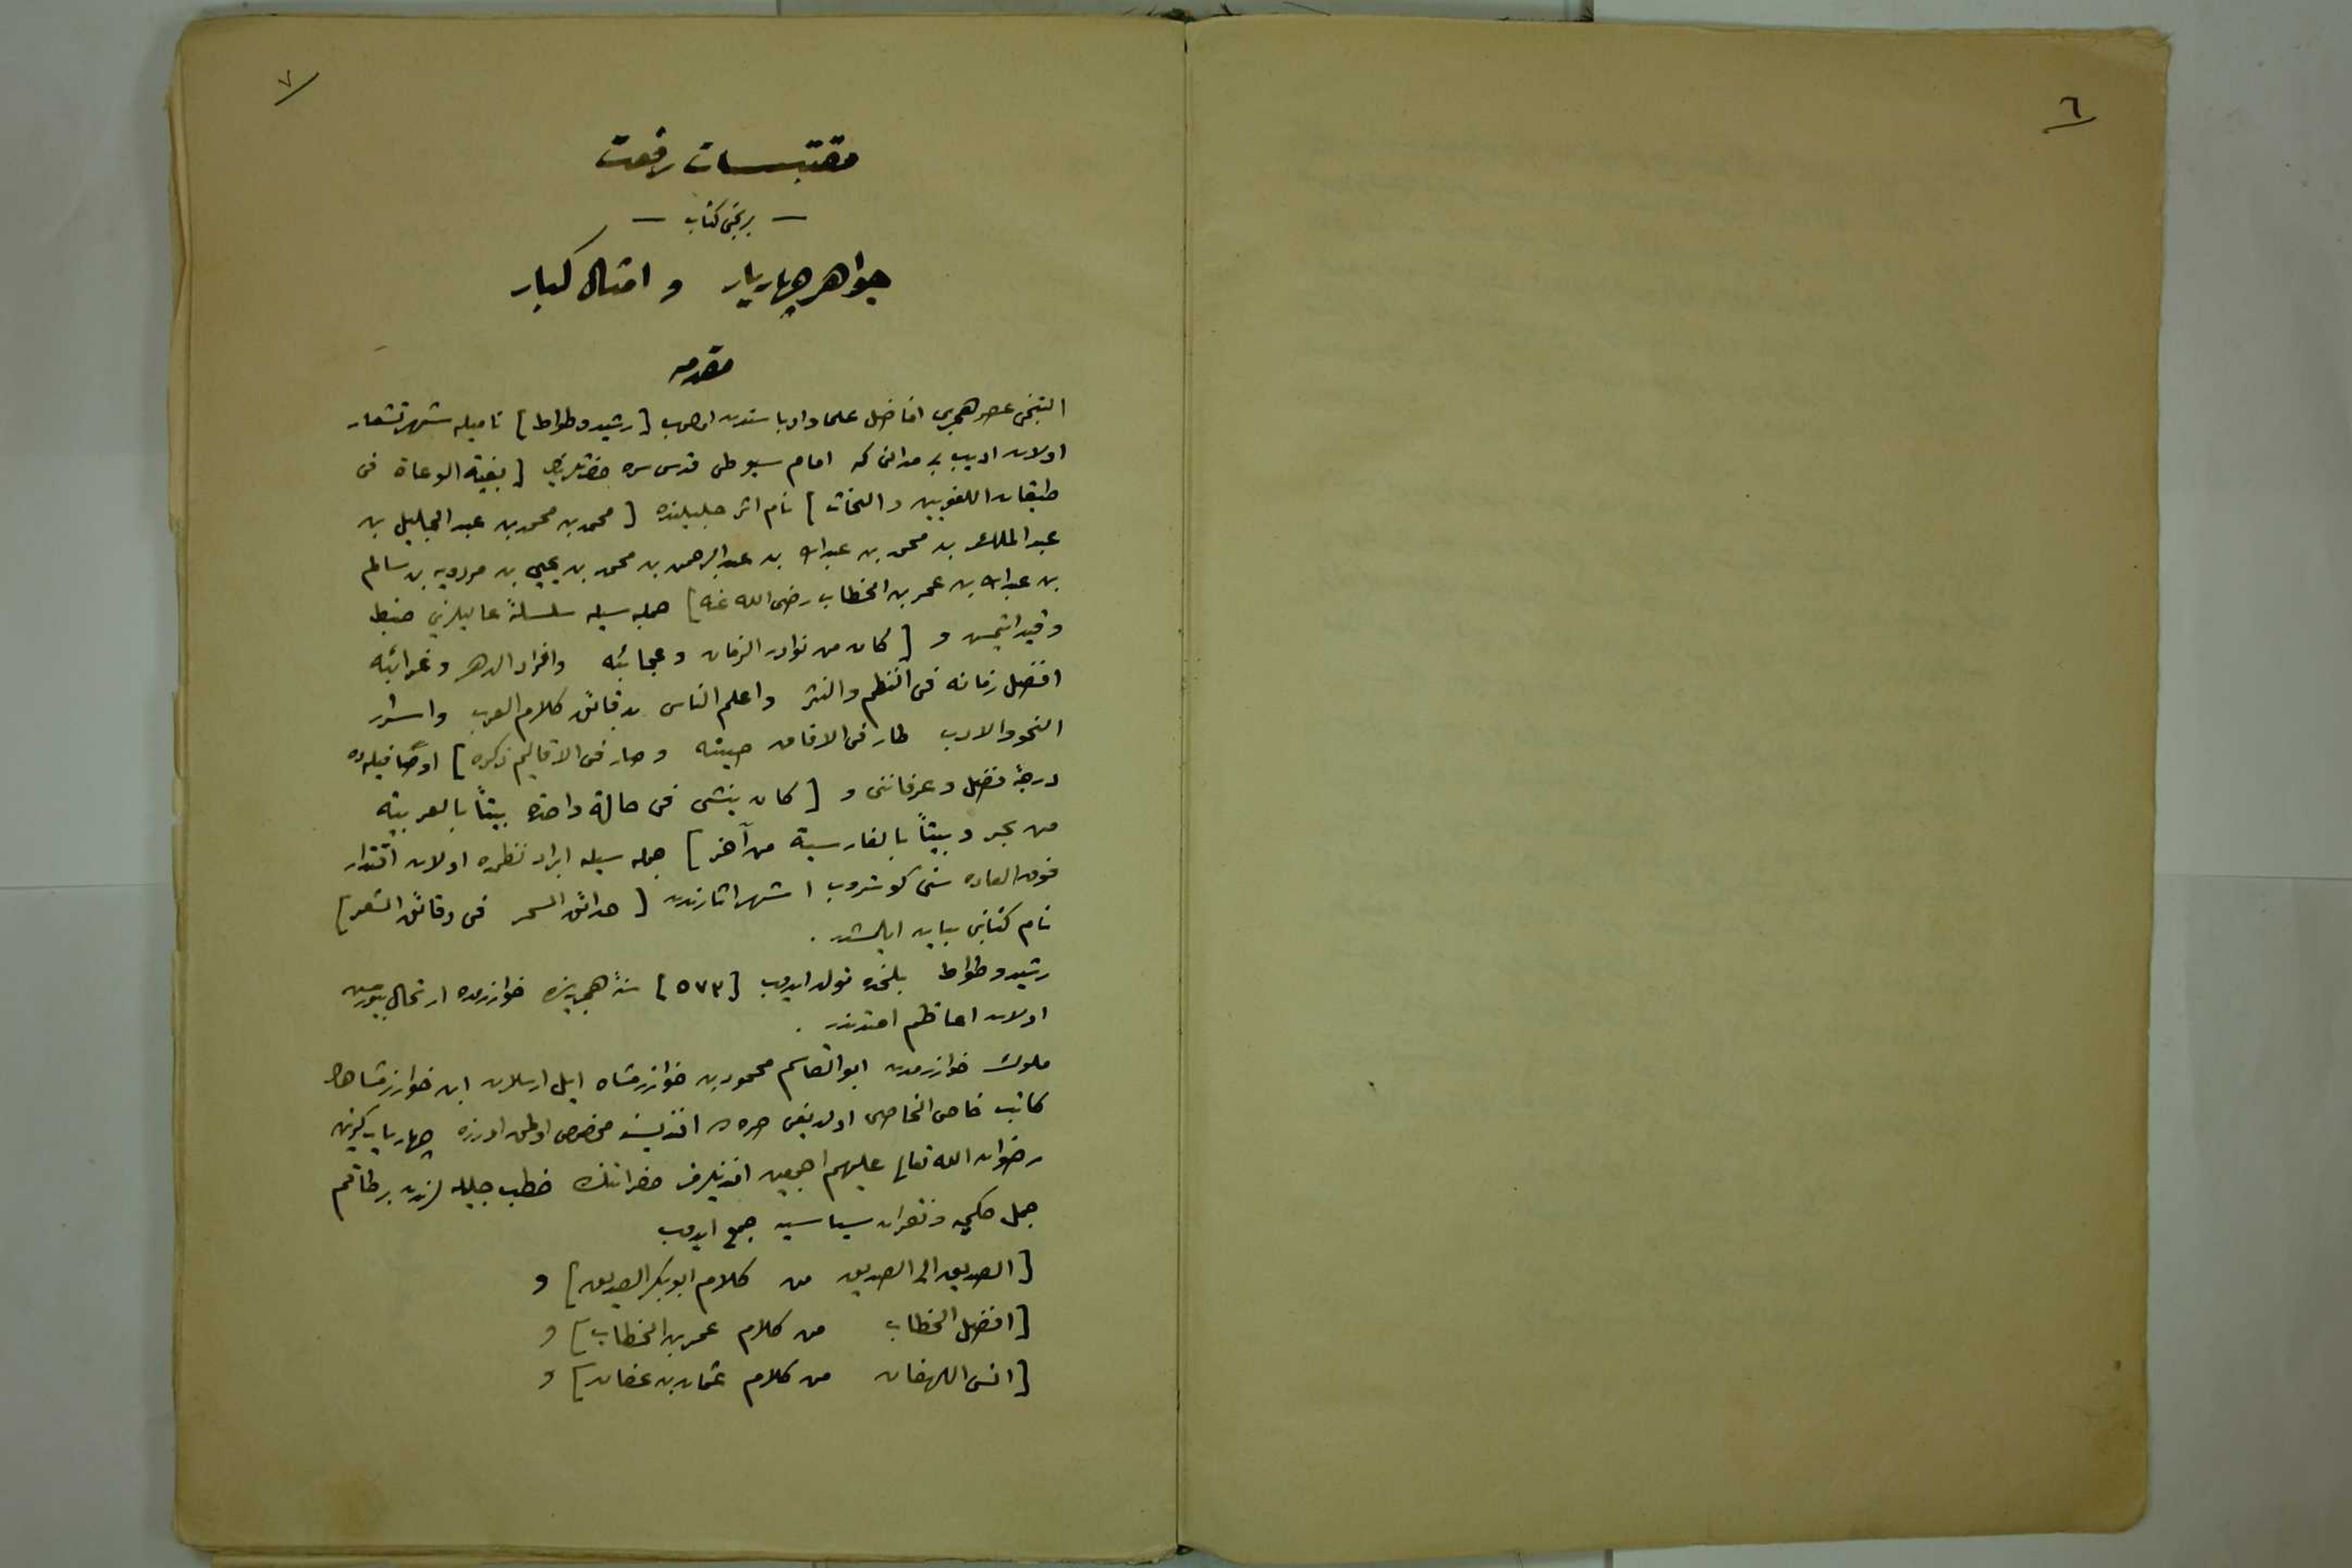 ٦
٧
مقتبسات رفعت
— برنجی کتاب —
جواهر چهاریار و امثال کبار
مقدمه
التنجی عصر هجری افاضل علما و ادباسندن اولوب [رشید وطواط] نامیله شهرتشعار
اولان ادیب بر مدانی که امام سیوطی قدس سره حضرتلری [بغیة الوعاة فی
طبقات اللغویین و النحات] نام اثر جلیلنده [محمد بن محمد بن عبد الجلیل بن
عبد الملک بن محمد بن عبد الله بن عبد الرحمن بن محمد بن یحیی بن مردویه بن سالم
بن عبد الله بن عمر بن الخطاب رضی الله عنه] جمله سیله سلسلۀ عالیلرینی ضبط
و قید ایتمش و [کان من نوادر الزمان و عجائبه وافراد الدهر و غرائبه
افضل زمانه فی النظم والنثر واعلم الناس بدقائق کلام العرب واسرار
النحو والادب طار فی الافاق صیته وصار فی الاقالیم ذکره] اوصافیله ده
درجۀ فضل و عرفاننی و [کان ینشی فی حالة واحدة بیتاً بالعربیة
من بحر و بیتاً بالفارسیة من آخر] جمله سیله ایراد نظمده اولان اقتدار
فوق العاده سنی کوستروب اشهر اثارندن [حدائق السحر فی دقائق الشعر]
نام کتابنی بیان ایلمشدر .
رشید وطواط بلخده تولد ایدوب [٥٧٣] سنۀ هجریه‌سنده خوارزمده ارتحال بیورمش
اولان اعاظم امتدندر .
ملوک خوارزمدن ابوالقاسم محمود بن خوارزمشاه ایل ارسلان ابن خوارزمشاهك
کاتب خاص الخاصی اولدیغی افندیسنه مخصوص اولمق اوزره چهاریار کزین
رضوان الله تعالی علیهم اجمعین افندیلرمز حضراتنك خطب جلیله لرندن بر طاقم
جمل حکمیه و فقرات سیاسیه جمع ایدوب
[الصدیق الی الصدیق من کلام ابوبکر الصدیق] و
[افضل الخطاب من کلام عمر بن الخطاب] و
[انس اللهفان من کلام عثمان بن عفان] و